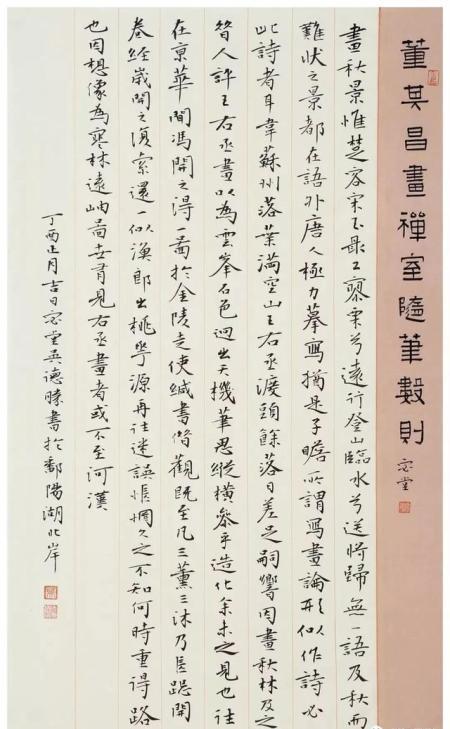 董其昌畫禪室隨筆數則
宓堂
畫秋景惟楚容宋玉最工寥栗兮遠行登山臨水兮送將歸無一語及秋而
難狀之景都在語外唐人極力摹寫猶是子瞻所謂寫畫論形似作詩必
此詩者耳韋蘇州落葉滿空山王右丞渡頭餘落日差足嗣響因畫秋林及之
昔人評王右丞畫以為雲峯石色迥出天機筆思縱橫參乎造化余未之見也往
在京華聞馮開之得一圖於金陵走使緘書借觀既至凡三薰三沐乃長跽開
卷經歲開之復索還一似漁郎出桃華源再往迷誤悵惘久之不知何時重得路
也因想像為寒林遠岫圖世有見右丞畫者或不至河漢
丁酉正月吉日宓堂吳德勝書於鄱陽湖北岸